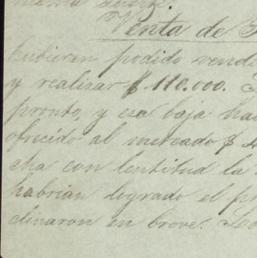 misma suerte.
Venta de
hubieran podido vende
y realizar $ 110.000.
pronto, y esa baja ha
ofrecido al mercado $
cha con lentitud la
habrian logrado el pr
clinaron en breve.